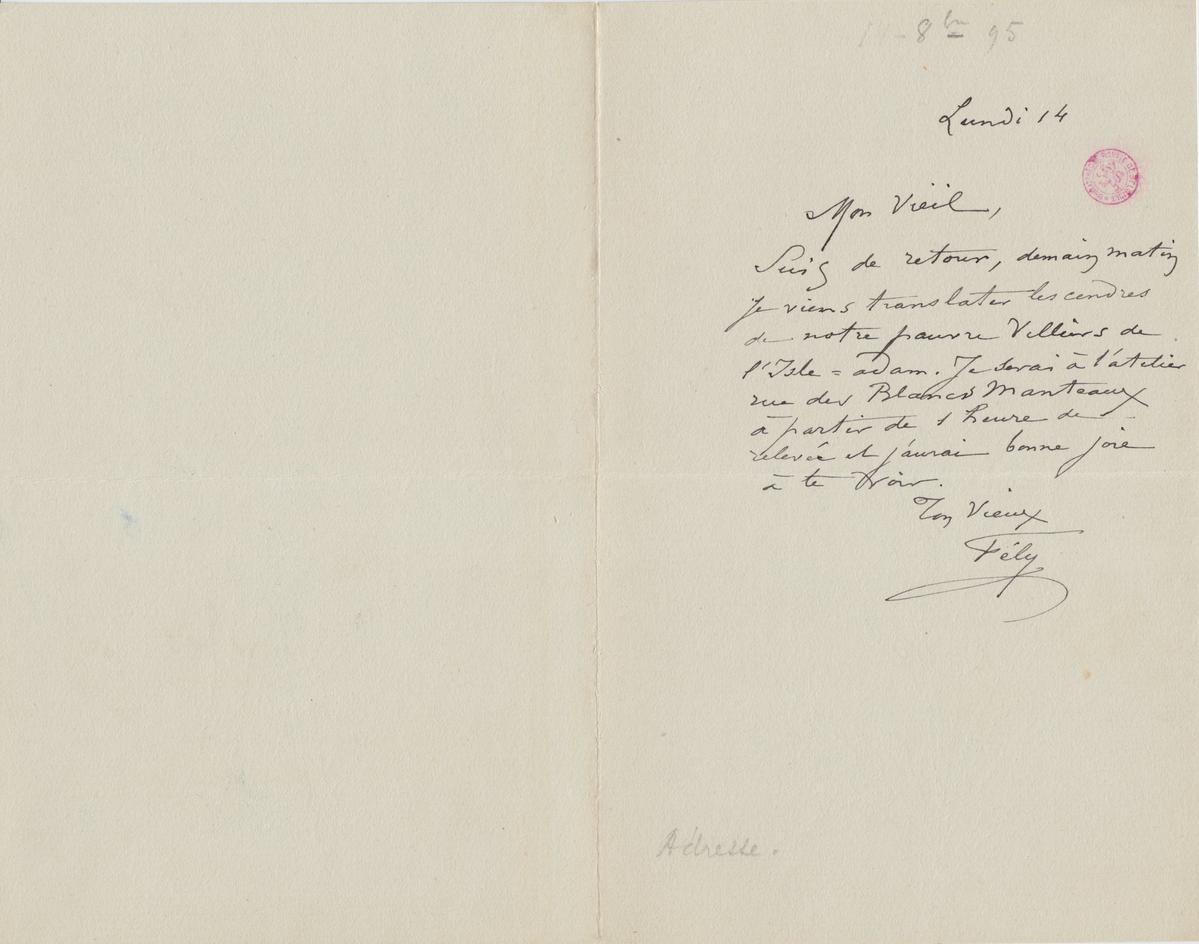 8bre 95
Lundi 14
Mon Vieil,
Suis de retour, demain matin
Je viens translater les cendres
de notre pauvre Villiers de
l'Isle = adam. Je serai à l'atelier
rue des Blancs Manteaux
à partir de 1 heure de
relevée et j'aurai bonne joie
à te voir.
Ton Vieux
Fély
Adresse.